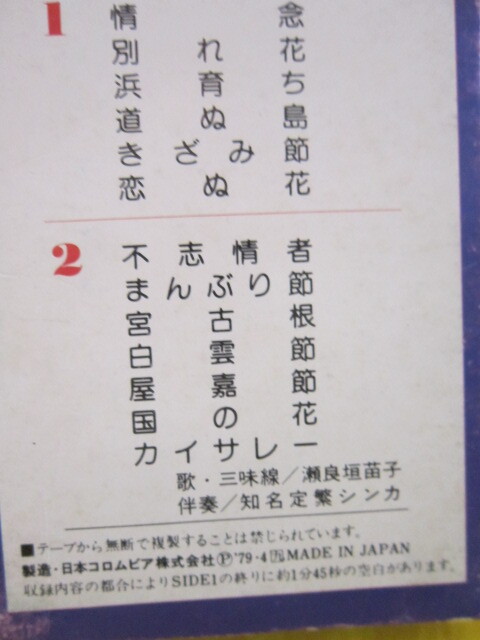 1
情念
別れ花
浜育ち
道ぬ島
きざみ節
恋ぬ花
2
不志情者
まんぶり節
宮古根
白雲節
屋嘉節
国の花
カイサレー
歌・三味線/瀬良垣苗子
伴奏/知名定繁シンカ
■テープから無断で複製することは禁じられています。
製造・日本コロムビア株式会社Ⓟ'79・4 MADE IN JAPAN
収録内容の都合によりSIDE1の終りに約1分45秒の空白があります。